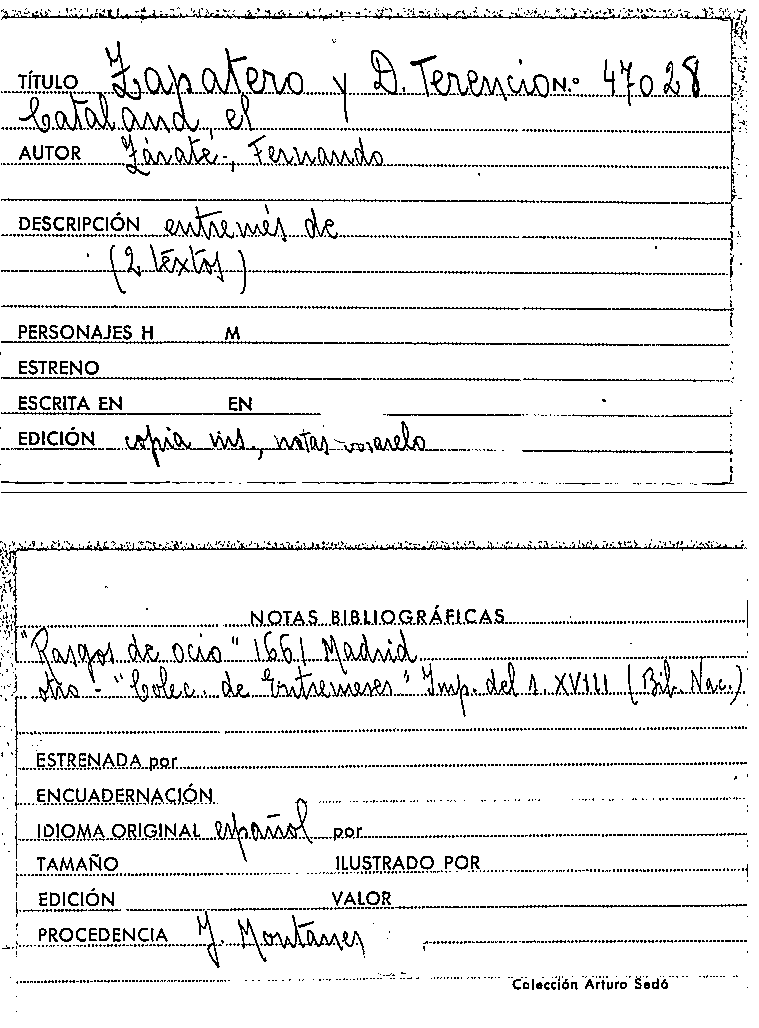 TÍTULO Zapatero y D. Terencio N.º 47028
Cataland, el
AUTOR Zárate-, Fernando
DESCRIPCIÓN entremés de
(2 textos)
PERSONAJES H M
ESTRENO
ESCRITA EN EN
EDICIÓN copia ms., notas
NOTAS BIBLIOGRÁFICAS
"Rasgos de ocio" 1661 Madrid
otro - "Colec. de Entremeses" Imp. del s. XVIII (Bib. Nac.)
ESTRENADA por
ENCUADERNACIÓN
IDIOMA ORIGINAL español por
TAMAÑO ILUSTRADO POR
EDICIÓN VALOR
PROCEDENCIA J. Montaner
Colección Arturo Sedó